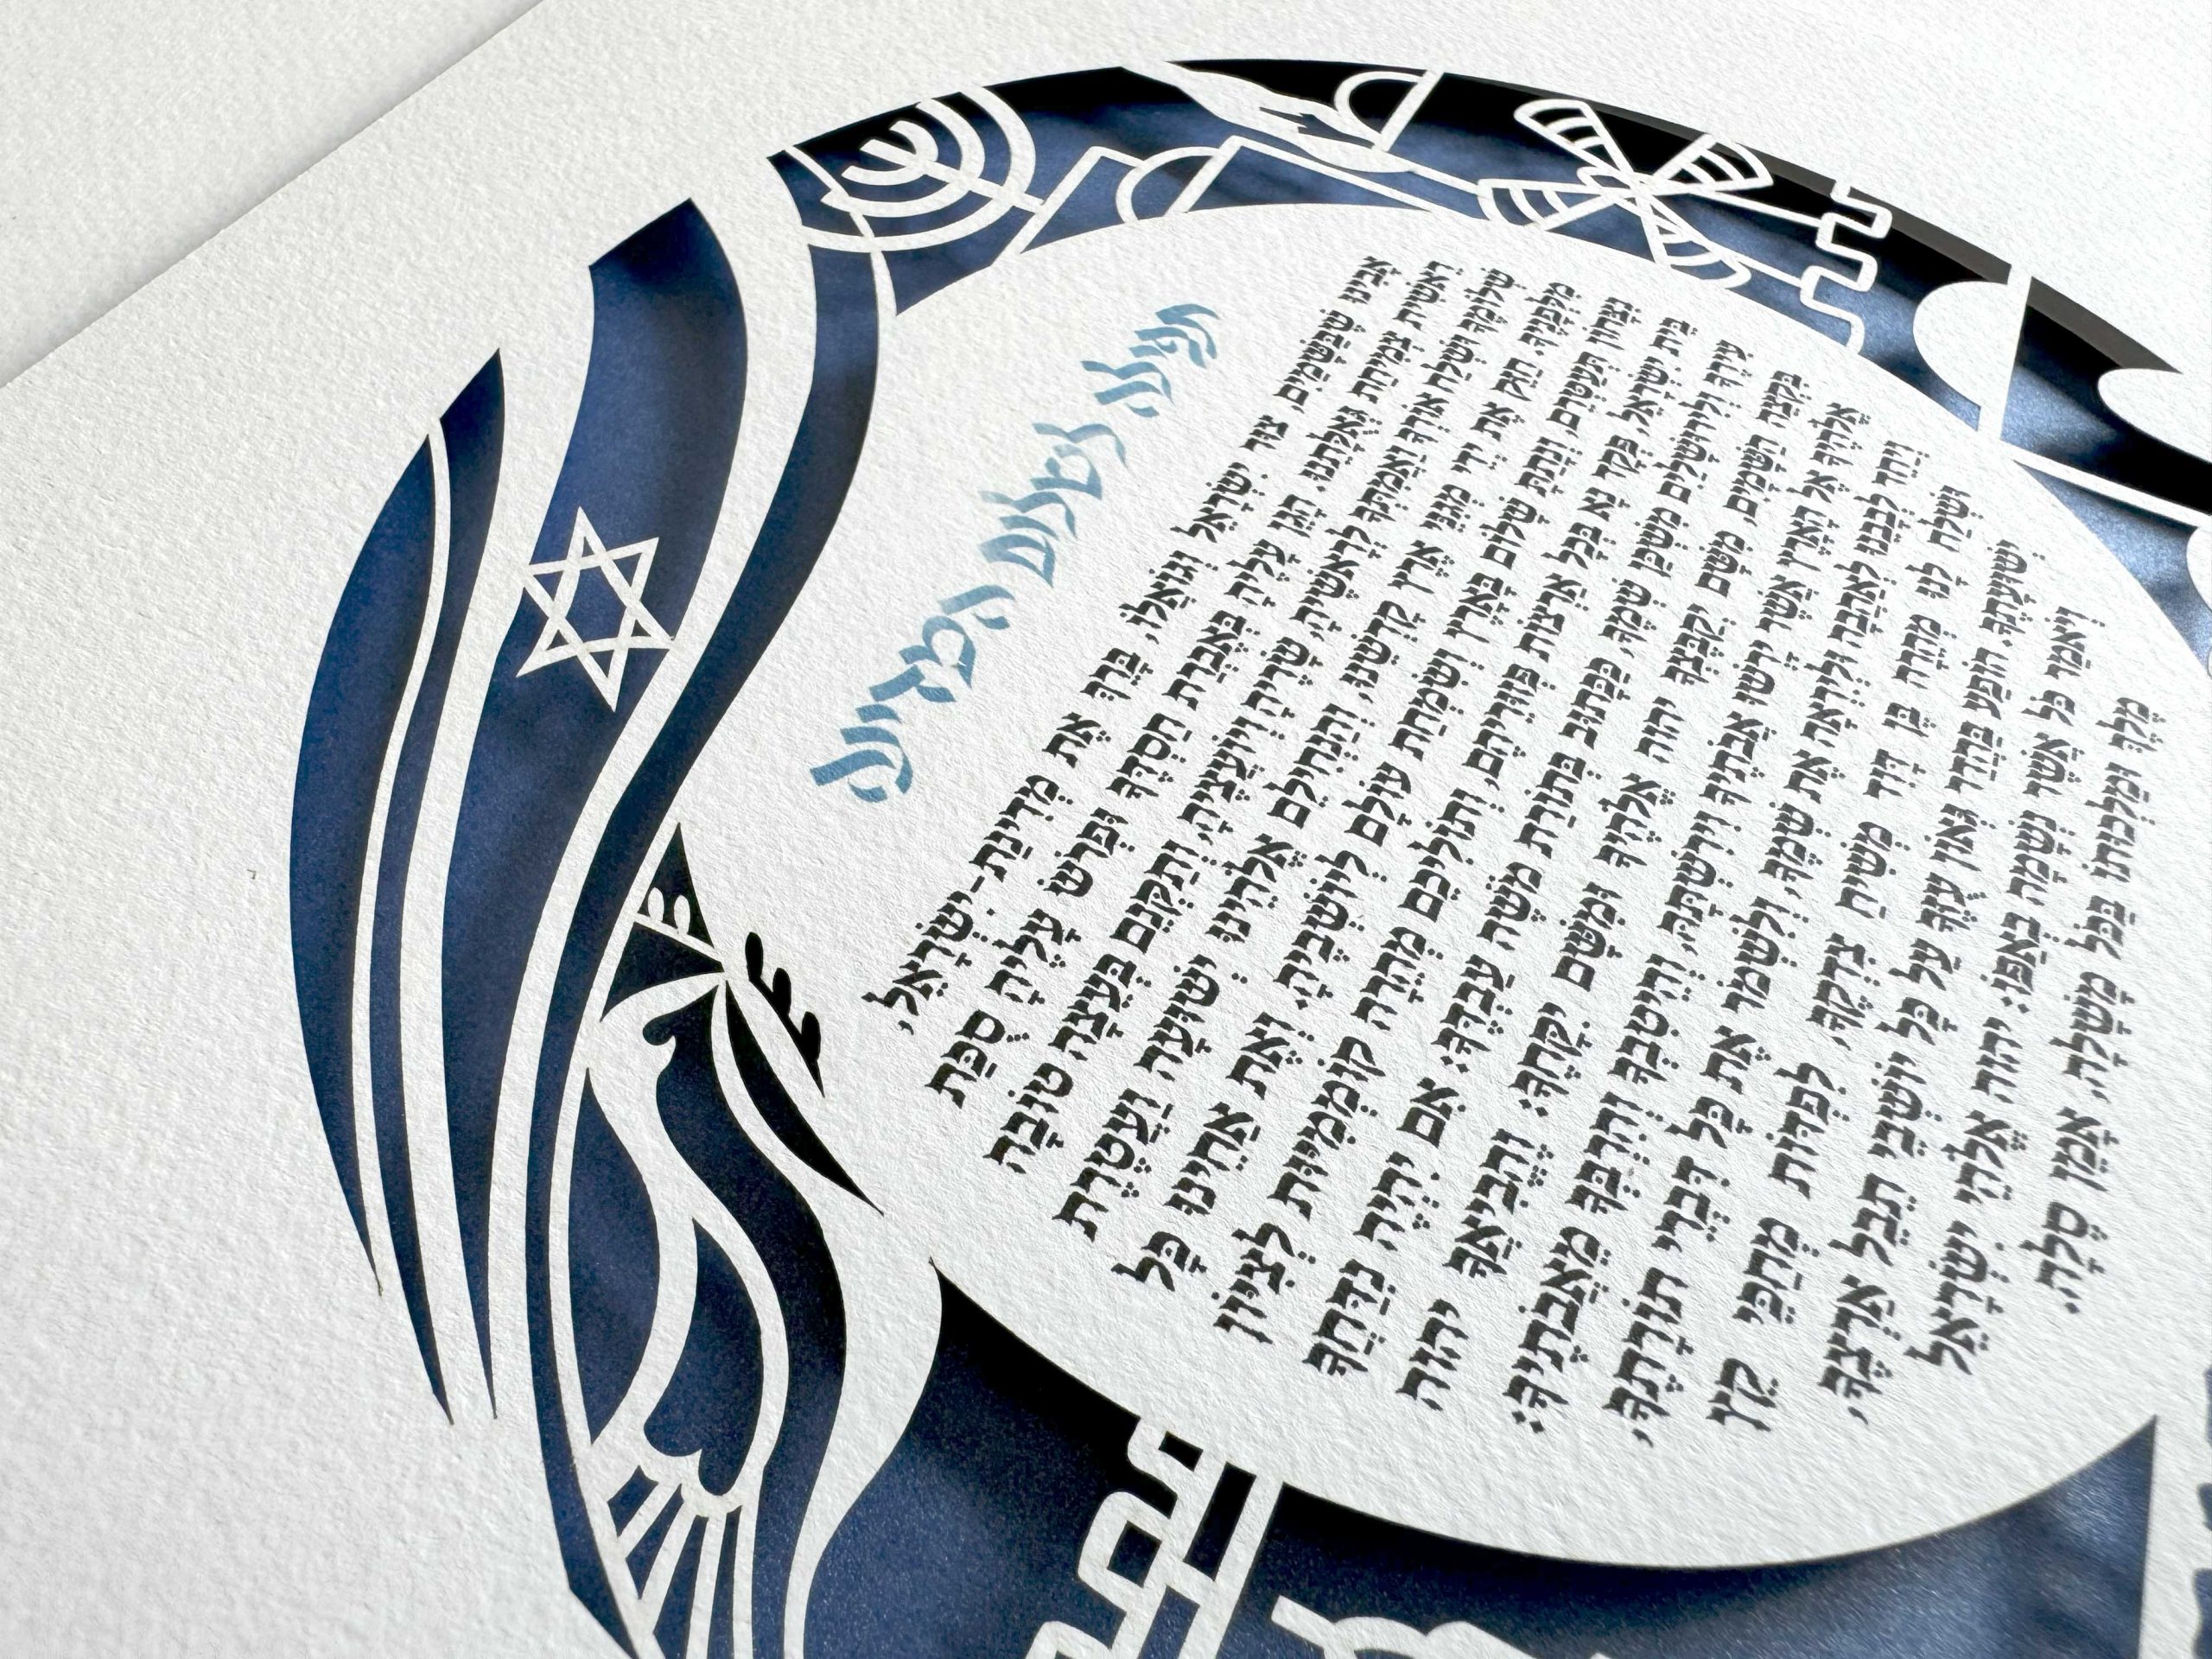 תפילה לשלום המדינה
אָבִינוּ שֶׁבַּשָּׁמַיִם, צוּר יִשְׂרָאֵל וְגוֹאֲלוֹ, בָּרֵךְ אֶת מְדִינַת-יִשְׂרָאֵל,
רֵאשִׁית צְמִיחַת גְּאֻלָּתֵנוּ. הָגֵן עָלֶיהָ בְּאֶבְרַת חַסְדֶּךָ וּפְרֹשׂ עָלֶיהָ סֻכַּת
שְׁלוֹמֶךָ וּשְׁלַח אוֹרְךָ וַאֲמִתְּךָ לְרָאשֶׁיהָ, שָׂרֶיהָ וְיוֹעֲצֶיהָ, וְתַקְּנֵם בְּעֵצָה טוֹבָה
מִלְּפָנֶיךָ. חַזֵּק אֶת יְדֵי מְגִנֵּי אֶרֶץ קָדְשֵׁנוּ, וְהַנְחִילֵם אֱלֹהֵינוּ יְשׁוּעָה וַעֲטֶרֶת
נִצָּחוֹן תְּעַטְּרֵם, וְנָתַתָּ שָׁלוֹם בָּאָרֶץ וְשִׂמְחַת עוֹלָם לְיוֹשְׁבֶיהָ. וְאֶת אַחֵינוּ כָּל
בֵּית יִשְׂרָאֵל, פְּקֹד נָא בְּכָל אַרְצוֹת פְּזוּרֵיהֶם, וְתוֹלִיכֵם מְהֵרָה קוֹמְמִיּוּת לְצִיּוֹן
עִירֶךָ וְלִירוּשָׁלַיִם מִשְׁכַּן שְׁמֶךָ, כַּכָּתוּב בְּתוֹרַת מֹשֶׁה עַבְדֶּךָ: אִם יִהְיֶה נִדַּחֲךָ
בִּקְצֵה הַשָּׁמַיִם, מִשָּׁם יְקַבֶּצְךָ יהוה אֱלֹהֶיךָ וּמִשָּׁם יִקָּחֶךָ: וֶהֱבִיאֲךָ יהוה
אֱלֹהֶיךָ אֶל הָאָרֶץ אֲשֶׁר יָרְשׁוּ אֲבֹתֶיךָ וִירִשְׁתָּהּ, וְהֵיטִבְךָ וְהִרְבְּךָ מֵאֲבֹתֶיךָ:
וְיַחֵד לְבָבֵנוּ לְאַהֲבָה וּלְיִרְאָה אֶת שְׁמֶךָ, וְלִשְׁמֹר אֶת כָּל דִּבְרֵי תוֹרָתֶךָ,
וּשְׁלַח לָנוּ מְהֵרָה בֶּן דָּוִד מְשִׁיחַ צִדְקֶךָ, לִפְדּוֹת מְחַכֵּי קֵץ
יְשׁוּעָתֶךָ. הוֹפַע בַּהֲדַר גְּאוֹן עֻזֶּךָ עַל כָּל יוֹשְׁבֵי תֵבֵל אַרְצֶךָ,
וְיֹאמַר כֹּל אֲשֶׁר נְשָׁמָה בְאַפּוֹ: יהוה אֱלֹהֵי יִשְׂרָאֵל
מֶלֶךְ וּמַלְכוּתוֹ בַּכֹּל מָשָׁלָה, אָמֵן סֶלָה.